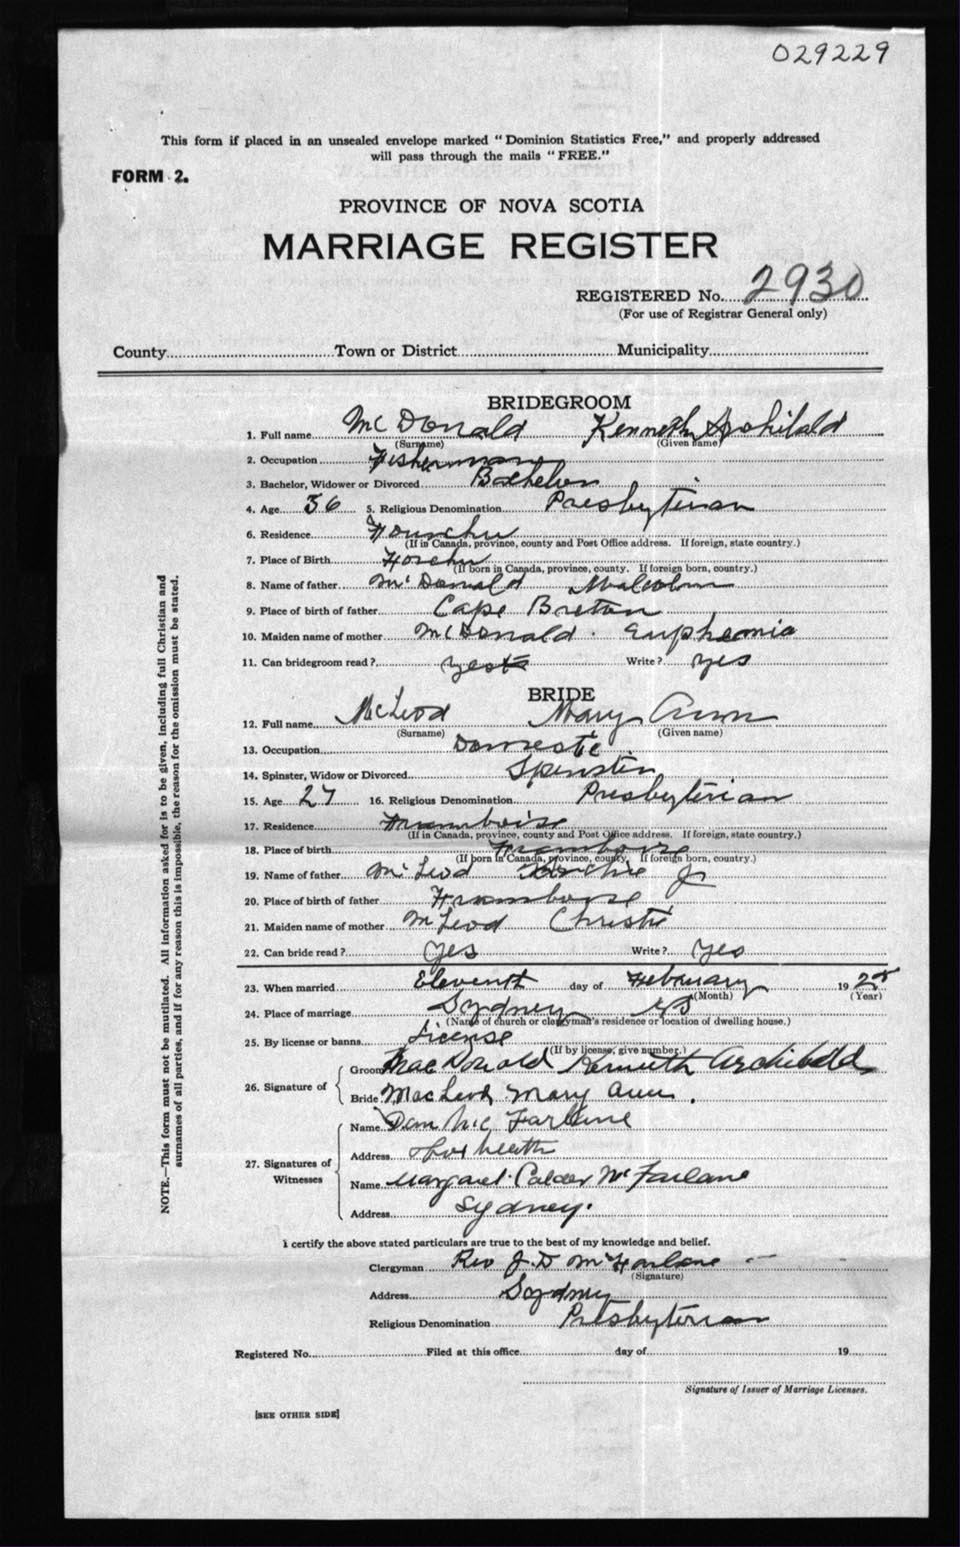 029229
This form if placed in an unsealed envelope marked "Dominion Statistics Free," and properly addressed
will pass through the mails "FREE."
FORM 2.
PROVINCE OF NOVA SCOTIA
MARRIAGE REGISTER
REGISTERED No. 2930
(For use of Registrar General only)
County Town or District Municipality
BRIDEGROOM
1. Full name McDonald Kenneth Archibald
(Surname) (Given name)
2. Occupation Fisherman
3. Bachelor, Widower or Divorced Bachelor
4. Age 36 5. Religious Denomination Presbyterian
6. Residence Fourchu
(If in Canada, province, county and Post Office address. If foreign, state country.)
7. Place of Birth Forchu
(If born in Canada, province, county. If foreign born, country.)
8. Name of father McDonald Malcolm
9. Place of birth of father Cape Breton
10. Maiden name of mother McDonald. Euphemia
11. Can bridegroom read? yes Write? yes
BRIDE
12. Full name McLeod Mary Ann
(Surname) (Given name)
13. Occupation Domestic
14. Spinster, Widow or Divorced Spinster
15. Age 27 16. Religious Denomination Presbyterian
17. Residence Framboise
(If in Canada, province, county and Post Office address. If foreign, state country.)
18. Place of birth Framboise
(If born in Canada, province, county. If foreign born, country.)
19. Name of father McLeod J
20. Place of birth of father Framboise
21. Maiden name of mother McLeod Christie
22. Can bride read? yes Write? yes
23. When married Eleventh day of February 1928
(Month) (Year)
24. Place of marriage Sydney NS
(Name of church or clergyman's residence or location of dwelling house.)
25. By license or banns License
(If by license, give number.)
26. Signature of
Groom MacDonald Kenneth Archibald
Bride MacLeod Mary Ann.
27. Signatures of Witnesses
Name Dan McFarlane
Address
Name Margaret Calder McFarlane
Address Sydney.
I certify the above stated particulars are true to the best of my knowledge and belief.
Clergyman Rev J. D McFarlane
(Signature)
Address Sydney
Religious Denomination Presbyterian
Registered No. Filed at this office day of 19
Signature of Issuer of Marriage Licenses.
[SEE OTHER SIDE]
NOTE.—This form must not be mutilated. All information asked for is to be given, including full Christian and
surnames of all parties, and if for any reason this is impossible, the reason for the omission must be stated.